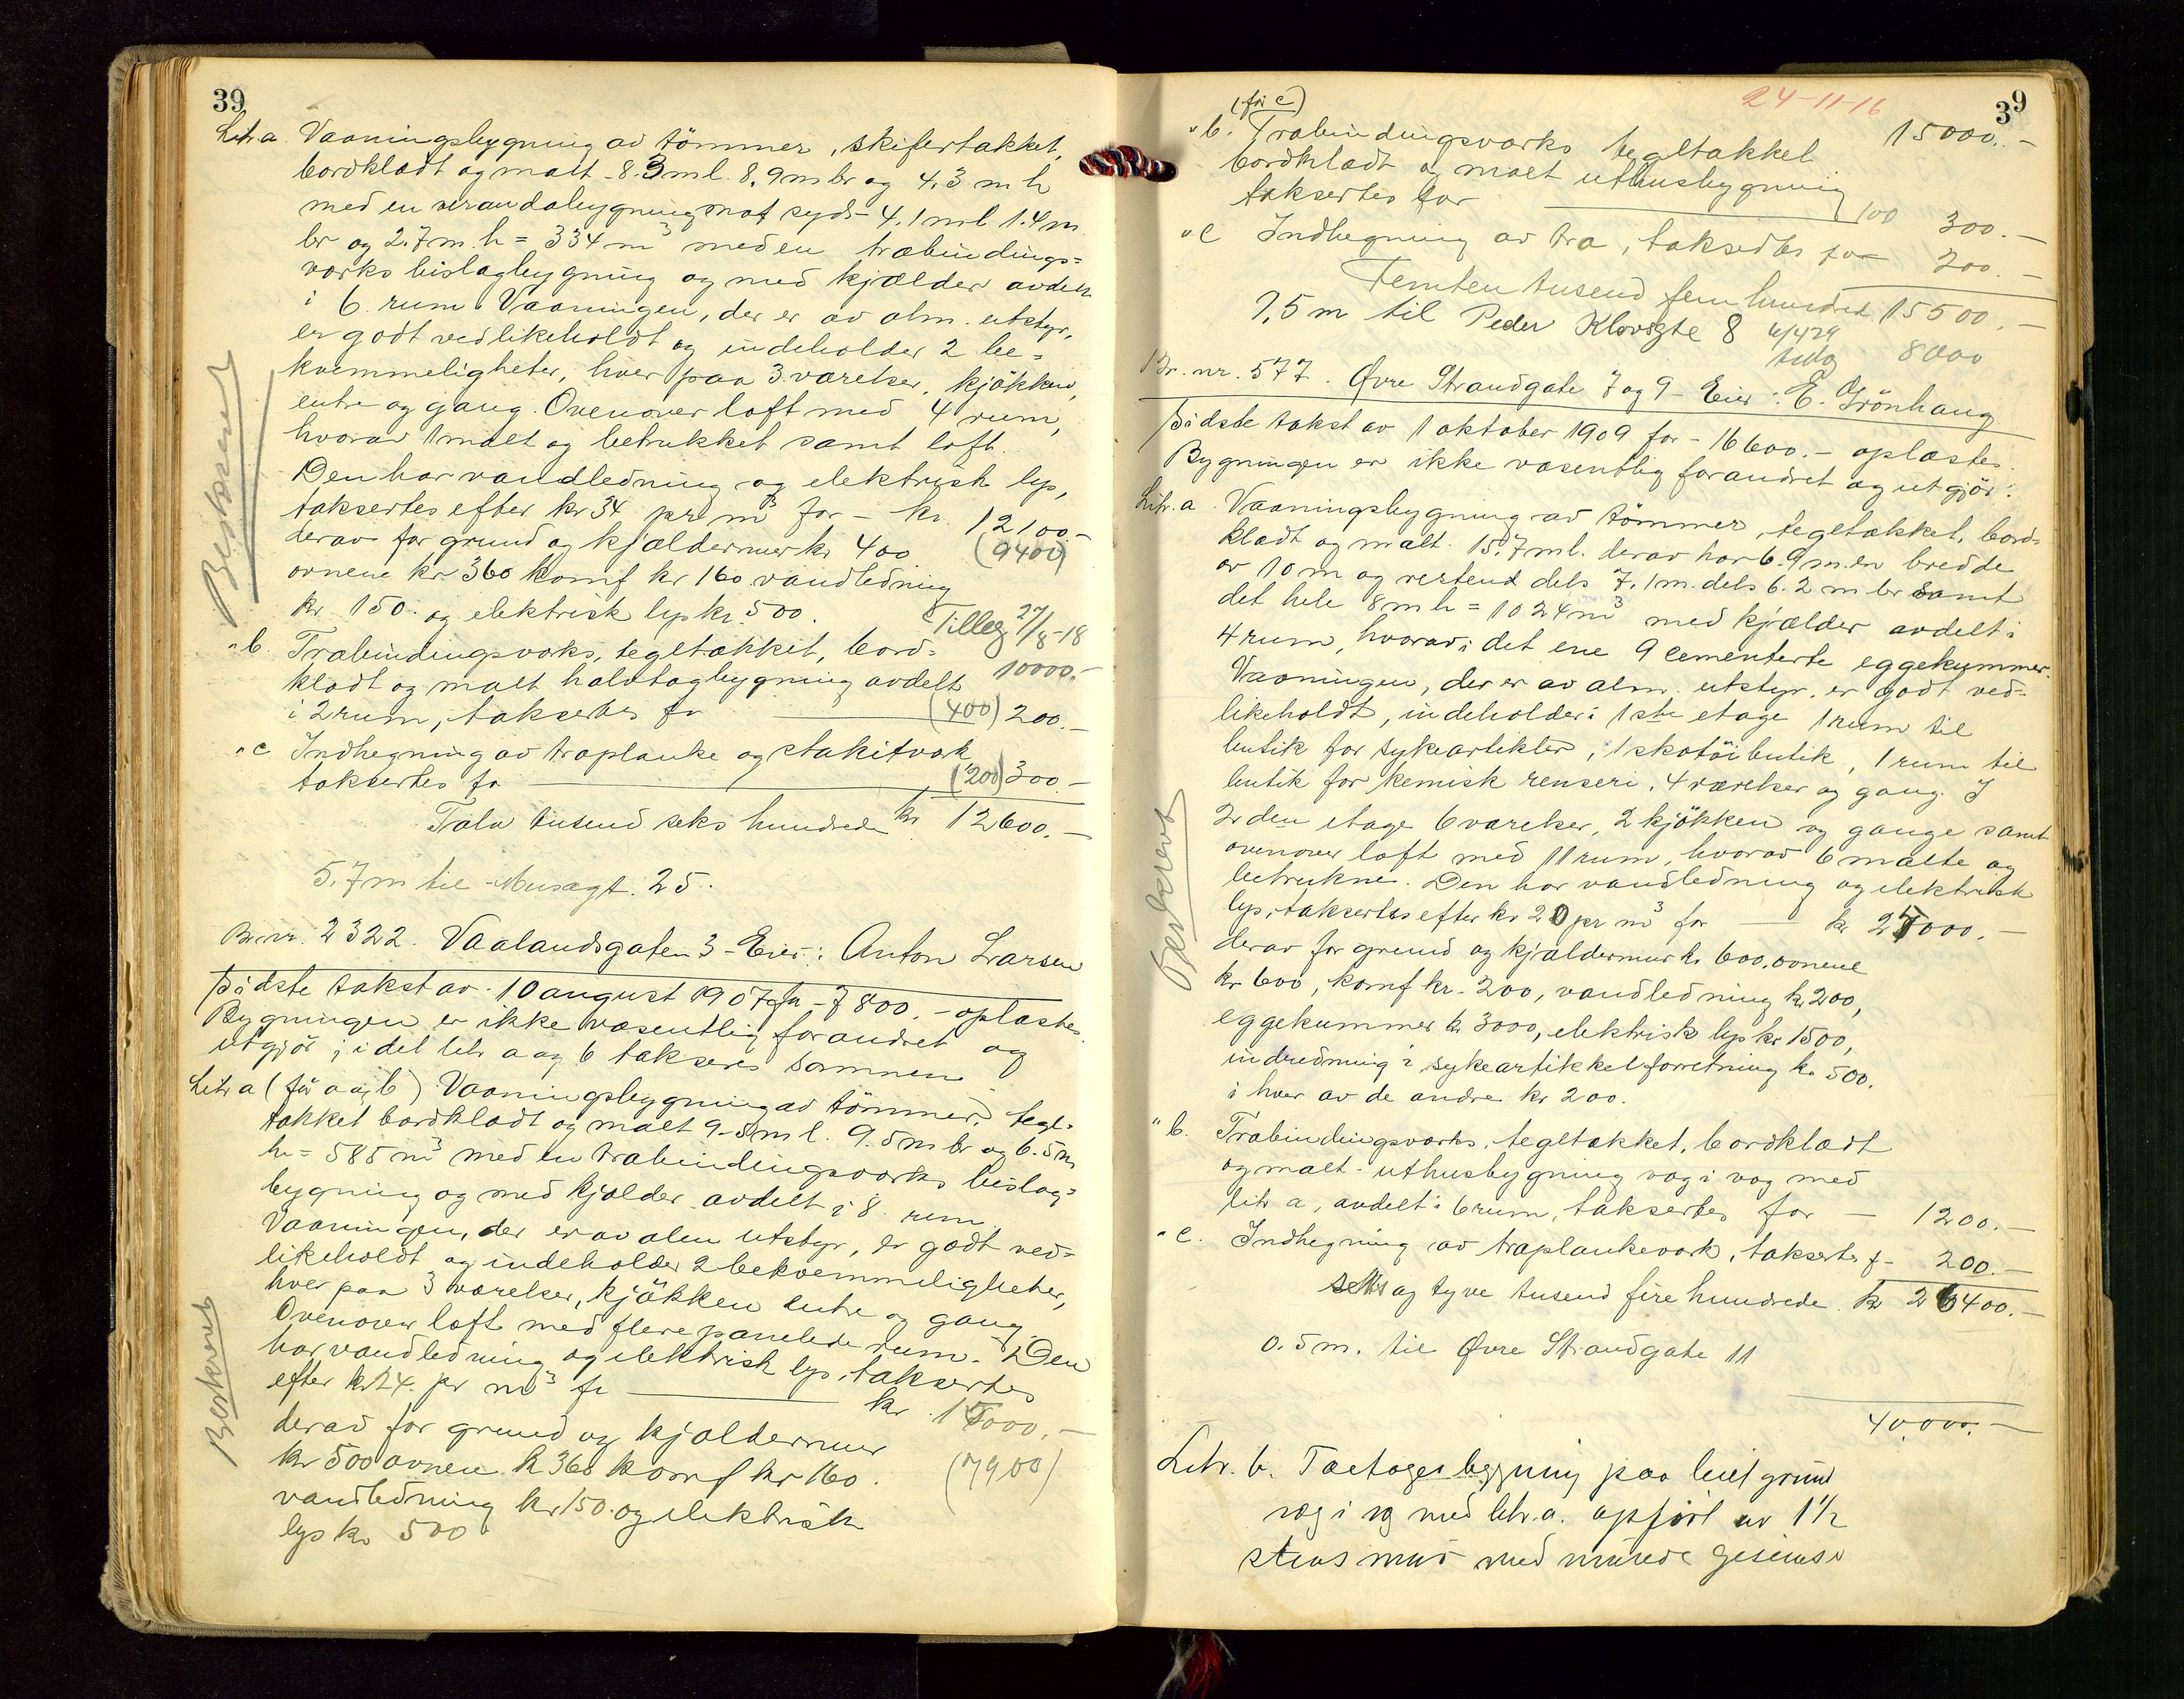 39
Litr. a. Vaaningsbygning av tömmer, skifertækket,
bordklædt og malt - 8.3 m l. 8,9 m br og 4.3 m h
med en verandabygning mot syd - 4.1 m l 1.4 m
br og 2.7 m. h = 334 m³ med en træbindings=
verks bislagbygning og med kjælder avdelt
i 6 rum. Vaaningen, der er av alm. utstyr,
er godt vedlikeholdt og indeholder 2 be=
kvemmeligheter, hver paa 3 værelser, kjökken,
entre og gang. Ovenover loft med 4 rum,
hvorav 1 malt og betrukket samt loft.
Den har vandledning og elektrisk lys,
taksertes efter kr 34 pr m³ for - kr. 12100.-
derav for grund og kjældermur kr 400 (9400)
ovnene kr 360 komf kr 160 vandledning
kr 150. og elektrisk lys kr. 500.
Tilleg 27/8-18
10000.-
Beskrevet
" b. Træbindingsverks, tegltækket, bord=
klædt og malt halvtagbygning avdelt
i 2 rum, taksertes for (400) 200.-
" c Indhegning av træplanke og stakitverk
taksertes for (200) 300.-
Tolv tusend seks hundrede kr 12600.-
5.7 m til Musegt. 25.
Br. nr. 2322. Vaalandsgaten 3 - Eier: Anton Larsen
Sidste takst av 10 august 1907 for - 7800.- oplæstes.
Bygningen er ikke væsentlig forandret og
utgjör; idet litr a og b takseres sammen
Litr a (för a og b) Vaaningsbygning av tömmer, tegl=
tækket bordklædt og malt 9.5 m l. 9.5 m br og 6.5 m
h = 585 m³ med en træbindingsverks bislag=
bygning og med kjælder avdelt i 8 rum.
Vaaningen, der er av alm utstyr, er godt ved=
likeholdt og indeholder 2 bekvemmeligheter,
hver paa 3 værelser, kjökken entre og gang
Ovenover loft med flere panelede rum. Den
har vandledning og elektrisk lys, taksertes
efter kr 24. pr m³ for kr. 15000.-
derav for grund og kjældermur
kr 500 ovnen k 360 komf kr 160. (7900)
vandledning kr 150. og elektrisk
lys kr 500
Beskrevet
24-11-16
39
(för c)
" b. Træbindingsverks tegltækket 15000.-
bordklædt og malt uthusbygning
taksertes for 100 300.-
" c Indhegning av træ, taksertes for 200.-
Femten tusend fem hundrede 15500.-
7,5 m til Peder Klowsgte 8 8000
Br. nr. 577. Øvre Strandgate 7 og 9 - Eier: E. Grönhaug
Sidste takst av 1 oktober 1909 for - 16600.- oplæstes.
Bygningen er ikke væsentlig forandret og utgjör:
Litr. a. Vaaningsbygning av tömmer, tegltækket, bord=
klædt og malt. 15.7 m l. derav har 6.9 m. en bredde
av 10 m og restend dels 7.1 m. dels 6.2 m br samt
det hele 8 m h = 1024 m³ med kjælder avdelt i
4 rum, hvorav i det ene 9 cementerte eggekummer.
Vaaningen, der er av alm. utstyr, er godt ved=
likeholdt, indeholder i 1ste etage 1 rum til
butik for sykeartikler, 1 skotöibutik, 1 rum til
butik for kemisk renseri, 4 værelser og gang. I
2den etage 6 værelser, 2 kjökken og gange samt
ovenover loft med 11 rum, hvorav 6 malte og
betrukne. Den har vandledning og elektrisk
lys, taksertes efter kr 20 pr m³ for kr 25000.-
derav for grund og kjældermur kr 600, ovnene
kr 600, komf kr. 200, vandledning kr 200,
eggekummer kr 3000, elektrisk lys kr 1500,
indredning i sykeartikkelforretning kr 500.
i hver av de andre kr 200.
Beskrevet
" b. Træbindingsverks, tegltækket, bordklædt
og malt uthusbygning væg i væg med
litr a, avdelt i 6 rum, taksertes for - 1200.-
" c. Indhegning av træplankeverk, taksertes f - 200.-
seks og tyve tusend fire hundrede. kr 26400.-
0.5 m. til Øvre Strandgate 11
40.000.-
Litr. b. Toetages bygning paa leiet grund
væg i væg med litr. a. opfört av 1½
stens mur med murede gesimser